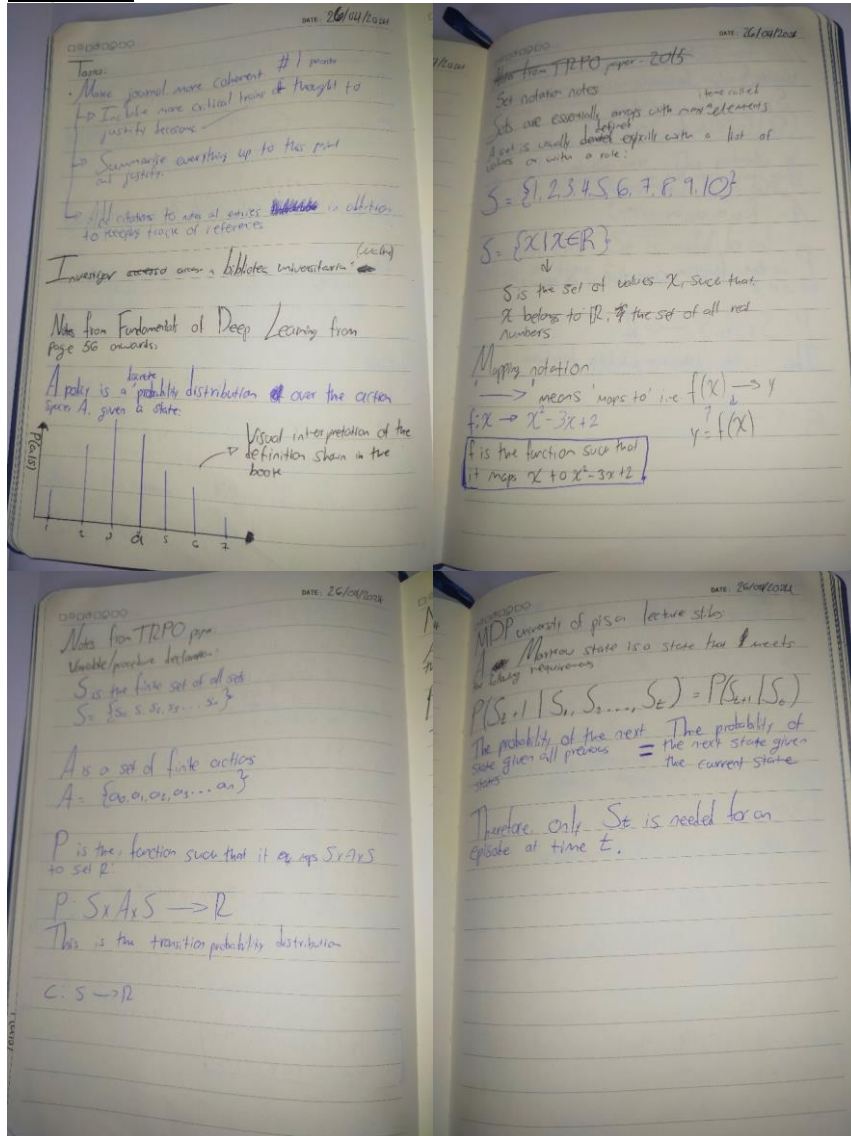 DATE: 26/04/2024
Tasks:
• Make journal more coherent #1 priority
↳ Include more critical trains of thought to
justify decisions
↳ Summarise everything up to this point
and justify.
↳ Add citations to notes and entries in addition
to keeping track of references
biblioteca universitaria
Notes from Fundamentals of Deep Learning from
page 56 onwards:
A policy is a discrete probability distribution over the action
space A, given a state.
P(a|s)
Visual interpretation of the
definition shown in the
book
1 2 3 4 5 6 7
DATE: 26/04/2024
Notes from TRPO paper - 2015
Set notation notes
Sets are essentially arrays with items called elements
A set is usually defined with a list of
values or with a rule:
S = {1,2,3,4,5,6,7,8,9,10}
S = {x|x∈ℝ}
↓
S is the set of values x, such that
x belongs to ℝ, the set of all real
numbers
Mapping notation
'→' means 'maps to' i.e f(x) → y
f: x → x²-3x+2
y = f(x)
f is the function such that
it maps x to x²-3x+2
DATE: 26/04/2024
Notes from TRPO paper
Variable/procedure declaration:
S is the finite set of all sets
S = {s₀, s₁, s₂, s₃ ... sₙ}
A is a set of finite actions
A = {a₀,a₁,a₂,a₃...aₙ}
P is the function such that it maps S×A×S
to set ℝ:
P: S×A×S → ℝ
This is the transition probability distribution
C: S → ℝ
DATE: 26/04/2024
MDP university of pisa lecture slides
A Markov state is a state that meets
the following requirements
P(Sₜ+1 | S₁, S₂ ..., Sₜ) = P(Sₜ₊₁|Sₜ)
The probability of the next state given all previous states = The probability of the next state given the current state
Therefore only Sₜ is needed for an
episode at time t.